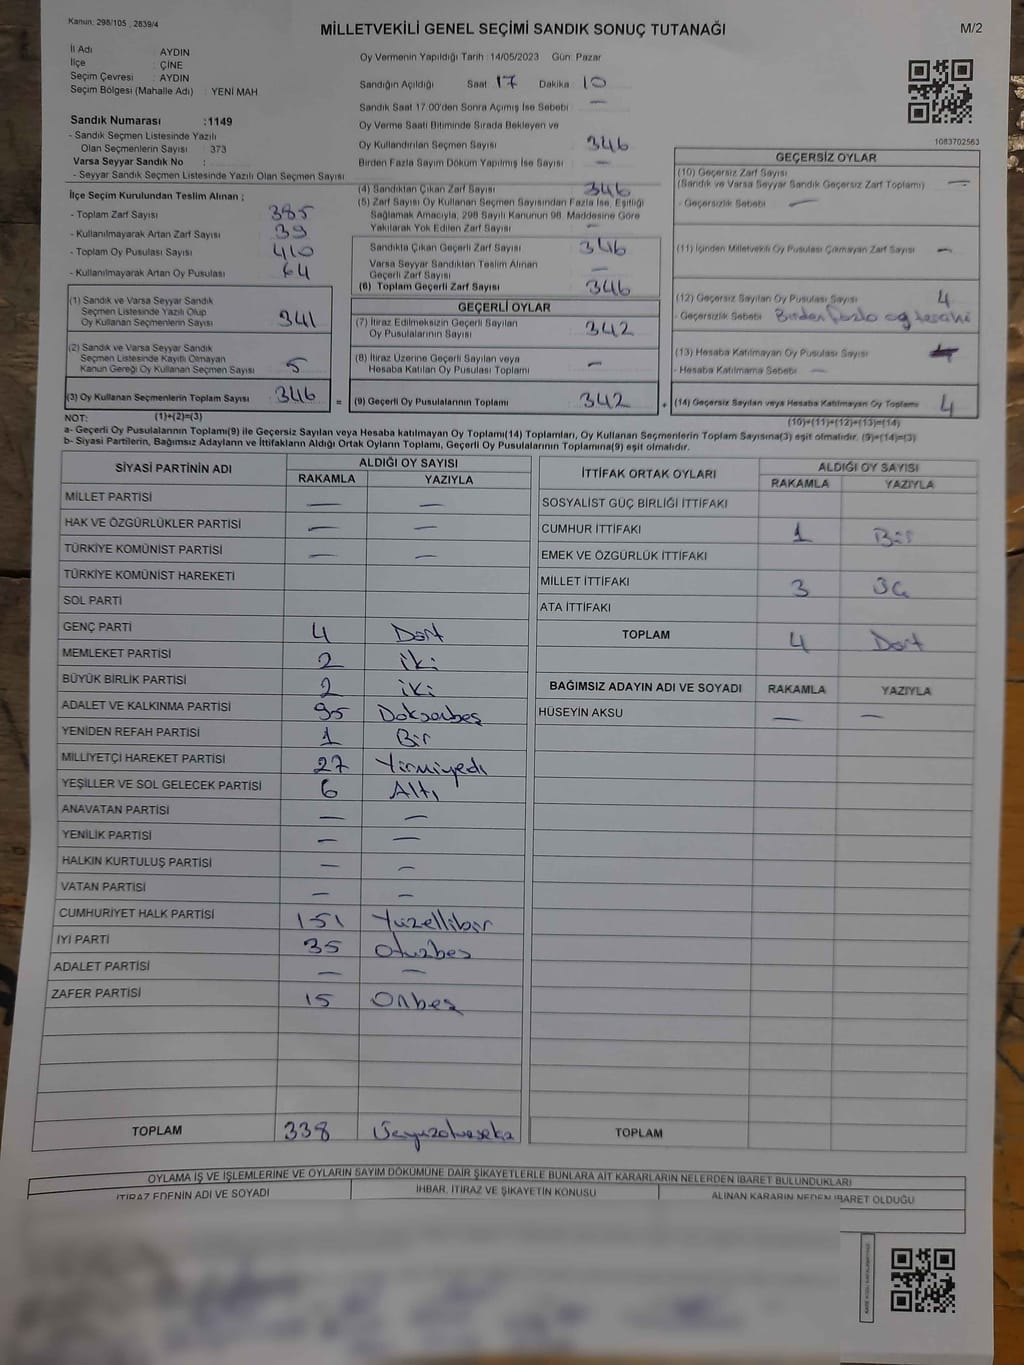 Kanun: 298/105 , 2839/4
MİLLETVEKİLİ GENEL SEÇİMİ SANDIK SONUÇ TUTANAĞI
M/2
İl Adı : AYDIN
İlçe : ÇİNE
Seçim Çevresi : AYDIN
Seçim Bölgesi (Mahalle Adı) : YENİ MAH
Sandık Numarası :1149
- Sandık Seçmen Listesinde Yazılı
Olan Seçmenlerin Sayısı : 373
Varsa Seyyar Sandık No :
- Seyyar Sandık Seçmen Listesinde Yazılı Olan Seçmen Sayısı
Oy Vermenin Yapıldığı Tarih : 14/05/2023 Gün: Pazar
Sandığın Açıldığı Saat 17 Dakika 10
Sandık Saat 17:00'den Sonra Açılmış İse Sebebi : —
Oy Verme Saati Bitiminde Sırada Bekleyen ve
Oy Kullandırılan Seçmen Sayısı : 346
Birden Fazla Sayım Döküm Yapılmış İse Sayısı : —
1083702563
İlçe Seçim Kurulundan Teslim Alınan ;
- Toplam Zarf Sayısı : 385
- Kullanılmayarak Artan Zarf Sayısı : 39
- Toplam Oy Pusulası Sayısı : 410
- Kullanılmayarak Artan Oy Pusulası : 64
(1) Sandık ve Varsa Seyyar Sandık
Seçmen Listesinde Yazılı Olup
Oy Kullanan Seçmenlerin Sayısı : 341
(2) Sandık ve Varsa Seyyar Sandık
Seçmen Listesinde Kayıtlı Olmayan
Kanun Gereği Oy Kullanan Seçmen Sayısı : 5
(3) Oy Kullanan Seçmenlerin Toplam Sayısı : 346
(4) Sandıktan Çıkan Zarf Sayısı : 346
(5) Zarf Sayısı Oy Kullanan Seçmen Sayısından Fazla İse, Eşitliği
Sağlamak Amacıyla, 298 Sayılı Kanunun 98. Maddesine Göre
Yakılarak Yok Edilen Zarf Sayısı : —
Sandıkta Çıkan Geçerli Zarf Sayısı : 346
Varsa Seyyar Sandıktan Teslim Alınan
Geçerli Zarf Sayısı : —
(6) Toplam Geçerli Zarf Sayısı : 346
GEÇERLİ OYLAR
(7) İtiraz Edilmeksizin Geçerli Sayılan
Oy Pusulalarının Sayısı : 342
(8) İtiraz Üzerine Geçerli Sayılan veya
Hesaba Katılan Oy Pusulası Toplamı : —
= (9) Geçerli Oy Pusulalarının Toplamı : 342
GEÇERSİZ OYLAR
(10) Geçersiz Zarf Sayısı
(Sandık ve Varsa Seyyar Sandık Geçersiz Zarf Toplamı) : —
- Geçersizlik Sebebi : —
(11) İçinden Milletvekili Oy Pusulası Çıkmayan Zarf Sayısı : —
(12) Geçersiz Sayılan Oy Pusulası Sayısı : 4
- Geçersizlik Sebebi : Birden fazla oy tercihi
(13) Hesaba Katılmayan Oy Pusulası Sayısı
- Hesaba Katılmama Sebebi : —
+ (14) Geçersiz Sayılan veya Hesaba Katılmayan Oy Toplamı : 4
NOT: (1)+(2)=(3) (10)+(11)+(12)+(13)=(14)
a- Geçerli Oy Pusulalarının Toplamı(9) ile Geçersiz Sayılan veya Hesaba katılmayan Oy Toplamı(14) Toplamları, Oy Kullanan Seçmenlerin Toplam Sayısına(3) eşit olmalıdır. (9)+(14)=(3)
b- Siyasi Partilerin, Bağımsız Adayların ve İttifakların Aldığı Ortak Oyların Toplamı, Geçerli Oy Pusulalarının Toplamına(9) eşit olmalıdır.
SİYASİ PARTİNİN ADI ALDIĞI OY SAYISI
RAKAMLA YAZIYLA
MİLLET PARTİSİ — —
HAK VE ÖZGÜRLÜKLER PARTİSİ — —
TÜRKİYE KOMÜNİST PARTİSİ — —
TÜRKİYE KOMÜNİST HAREKETİ
SOL PARTİ
GENÇ PARTİ 4 Dört
MEMLEKET PARTİSİ 2 iki
BÜYÜK BİRLİK PARTİSİ 2 iki
ADALET VE KALKINMA PARTİSİ 95 Doksanbeş
YENİDEN REFAH PARTİSİ 1 Bir
MİLLİYETÇİ HAREKET PARTİSİ 27 Yirmiyedi
YEŞİLLER VE SOL GELECEK PARTİSİ 6 Altı
ANAVATAN PARTİSİ — —
YENİLİK PARTİSİ — —
HALKIN KURTULUŞ PARTİSİ — —
VATAN PARTİSİ — —
CUMHURİYET HALK PARTİSİ 151 Yüzellibir
İYİ PARTİ 35 Otuzbeş
ADALET PARTİSİ — —
ZAFER PARTİSİ 15 Onbeş
TOPLAM 338 Üçyüzotuzsekiz
İTTİFAK ORTAK OYLARI ALDIĞI OY SAYISI
RAKAMLA YAZIYLA
SOSYALİST GÜÇ BİRLİĞİ İTTİFAKI
CUMHUR İTTİFAKI 1 Bir
EMEK VE ÖZGÜRLÜK İTTİFAKI
MİLLET İTTİFAKI 3 Üç
ATA İTTİFAKI
TOPLAM 4 Dört
BAĞIMSIZ ADAYIN ADI VE SOYADI RAKAMLA YAZIYLA
HÜSEYİN AKSU — —
TOPLAM
OYLAMA İŞ VE İŞLEMLERİNE VE OYLARIN SAYIM DÖKÜMÜNE DAİR ŞİKAYETLERLE BUNLARA AİT KARARLARIN NELERDEN İBARET BULUNDUKLARI
İTİRAZ EDENİN ADI VE SOYADI İHBAR, İTİRAZ VE ŞİKAYETİN KONUSU ALINAN KARARIN NEDEN İBARET OLDUĞU